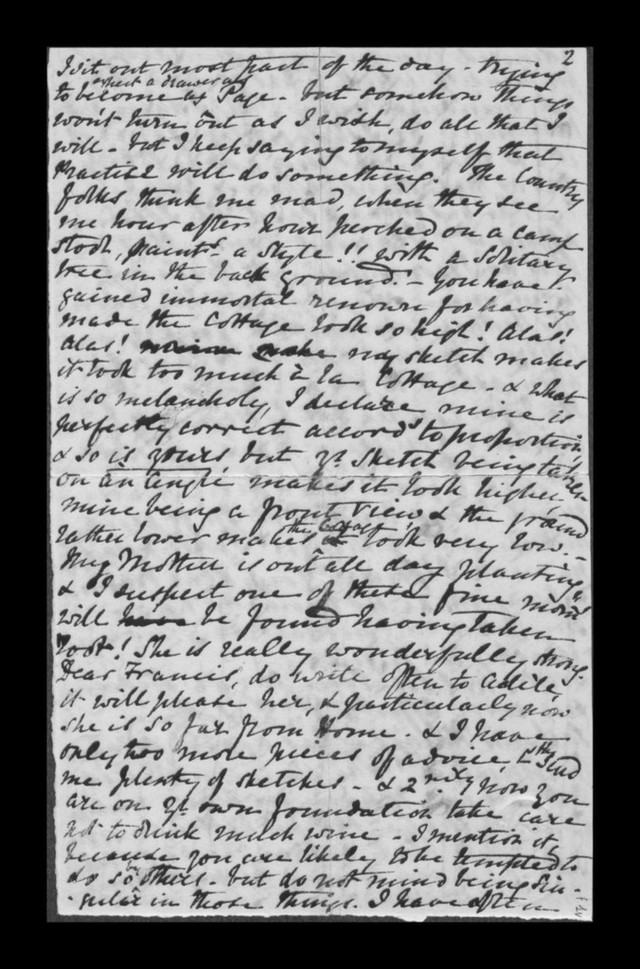 2
I sit out most part of the day - trying
to become as Page - but somehow things
won't turn out as I wish, do all that I
will - but I keep saying to myself that
Practise will do something. The Country
folks think me mad, when they see
me hour after hour perched on a camp
stool, paintg a style!! with a Solitary
tree in the back ground! - You have
gained immortal renown for having
made the Cottage look so high! Alas!
Alas! my sketch makes
it look too much à la Cottage - & what
is so melancholy, I declare mine is
perfectly correct accordg to proportion,
& so is yours but yr Sketch being taken
on an angle makes it look higher,
mine being a front view & the ground
rather lower makes the Cottage look very low. -
My Mother is out all day planting
& I suspect one of these fine morngs
will be found having taken
root! She is really wonderfully strong.
Dear Francis, do write often to Adile,
it will please her, & particularly now
she is so far from Home. - & I have
only two more pieces of advice, Send
me plenty of sketches - & 2ndly now you
are on yr own foundation take care
not to drink much wine - I mention it,
because you are likely to be tempted to
do so by others - but do not mind being sin-
-gular in those things. I have often